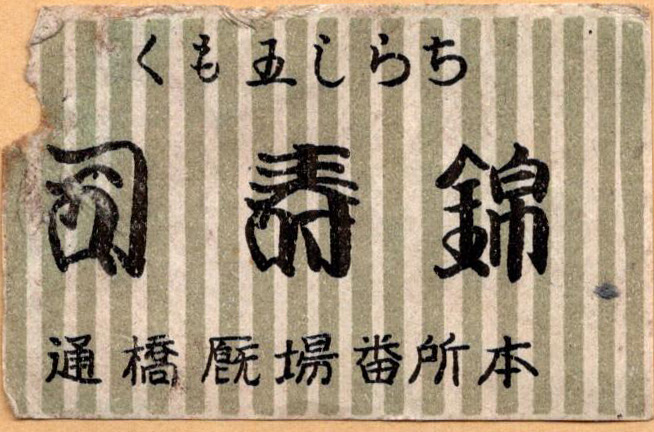 ちらし五もく
錦壽司
本所番場厩橋通